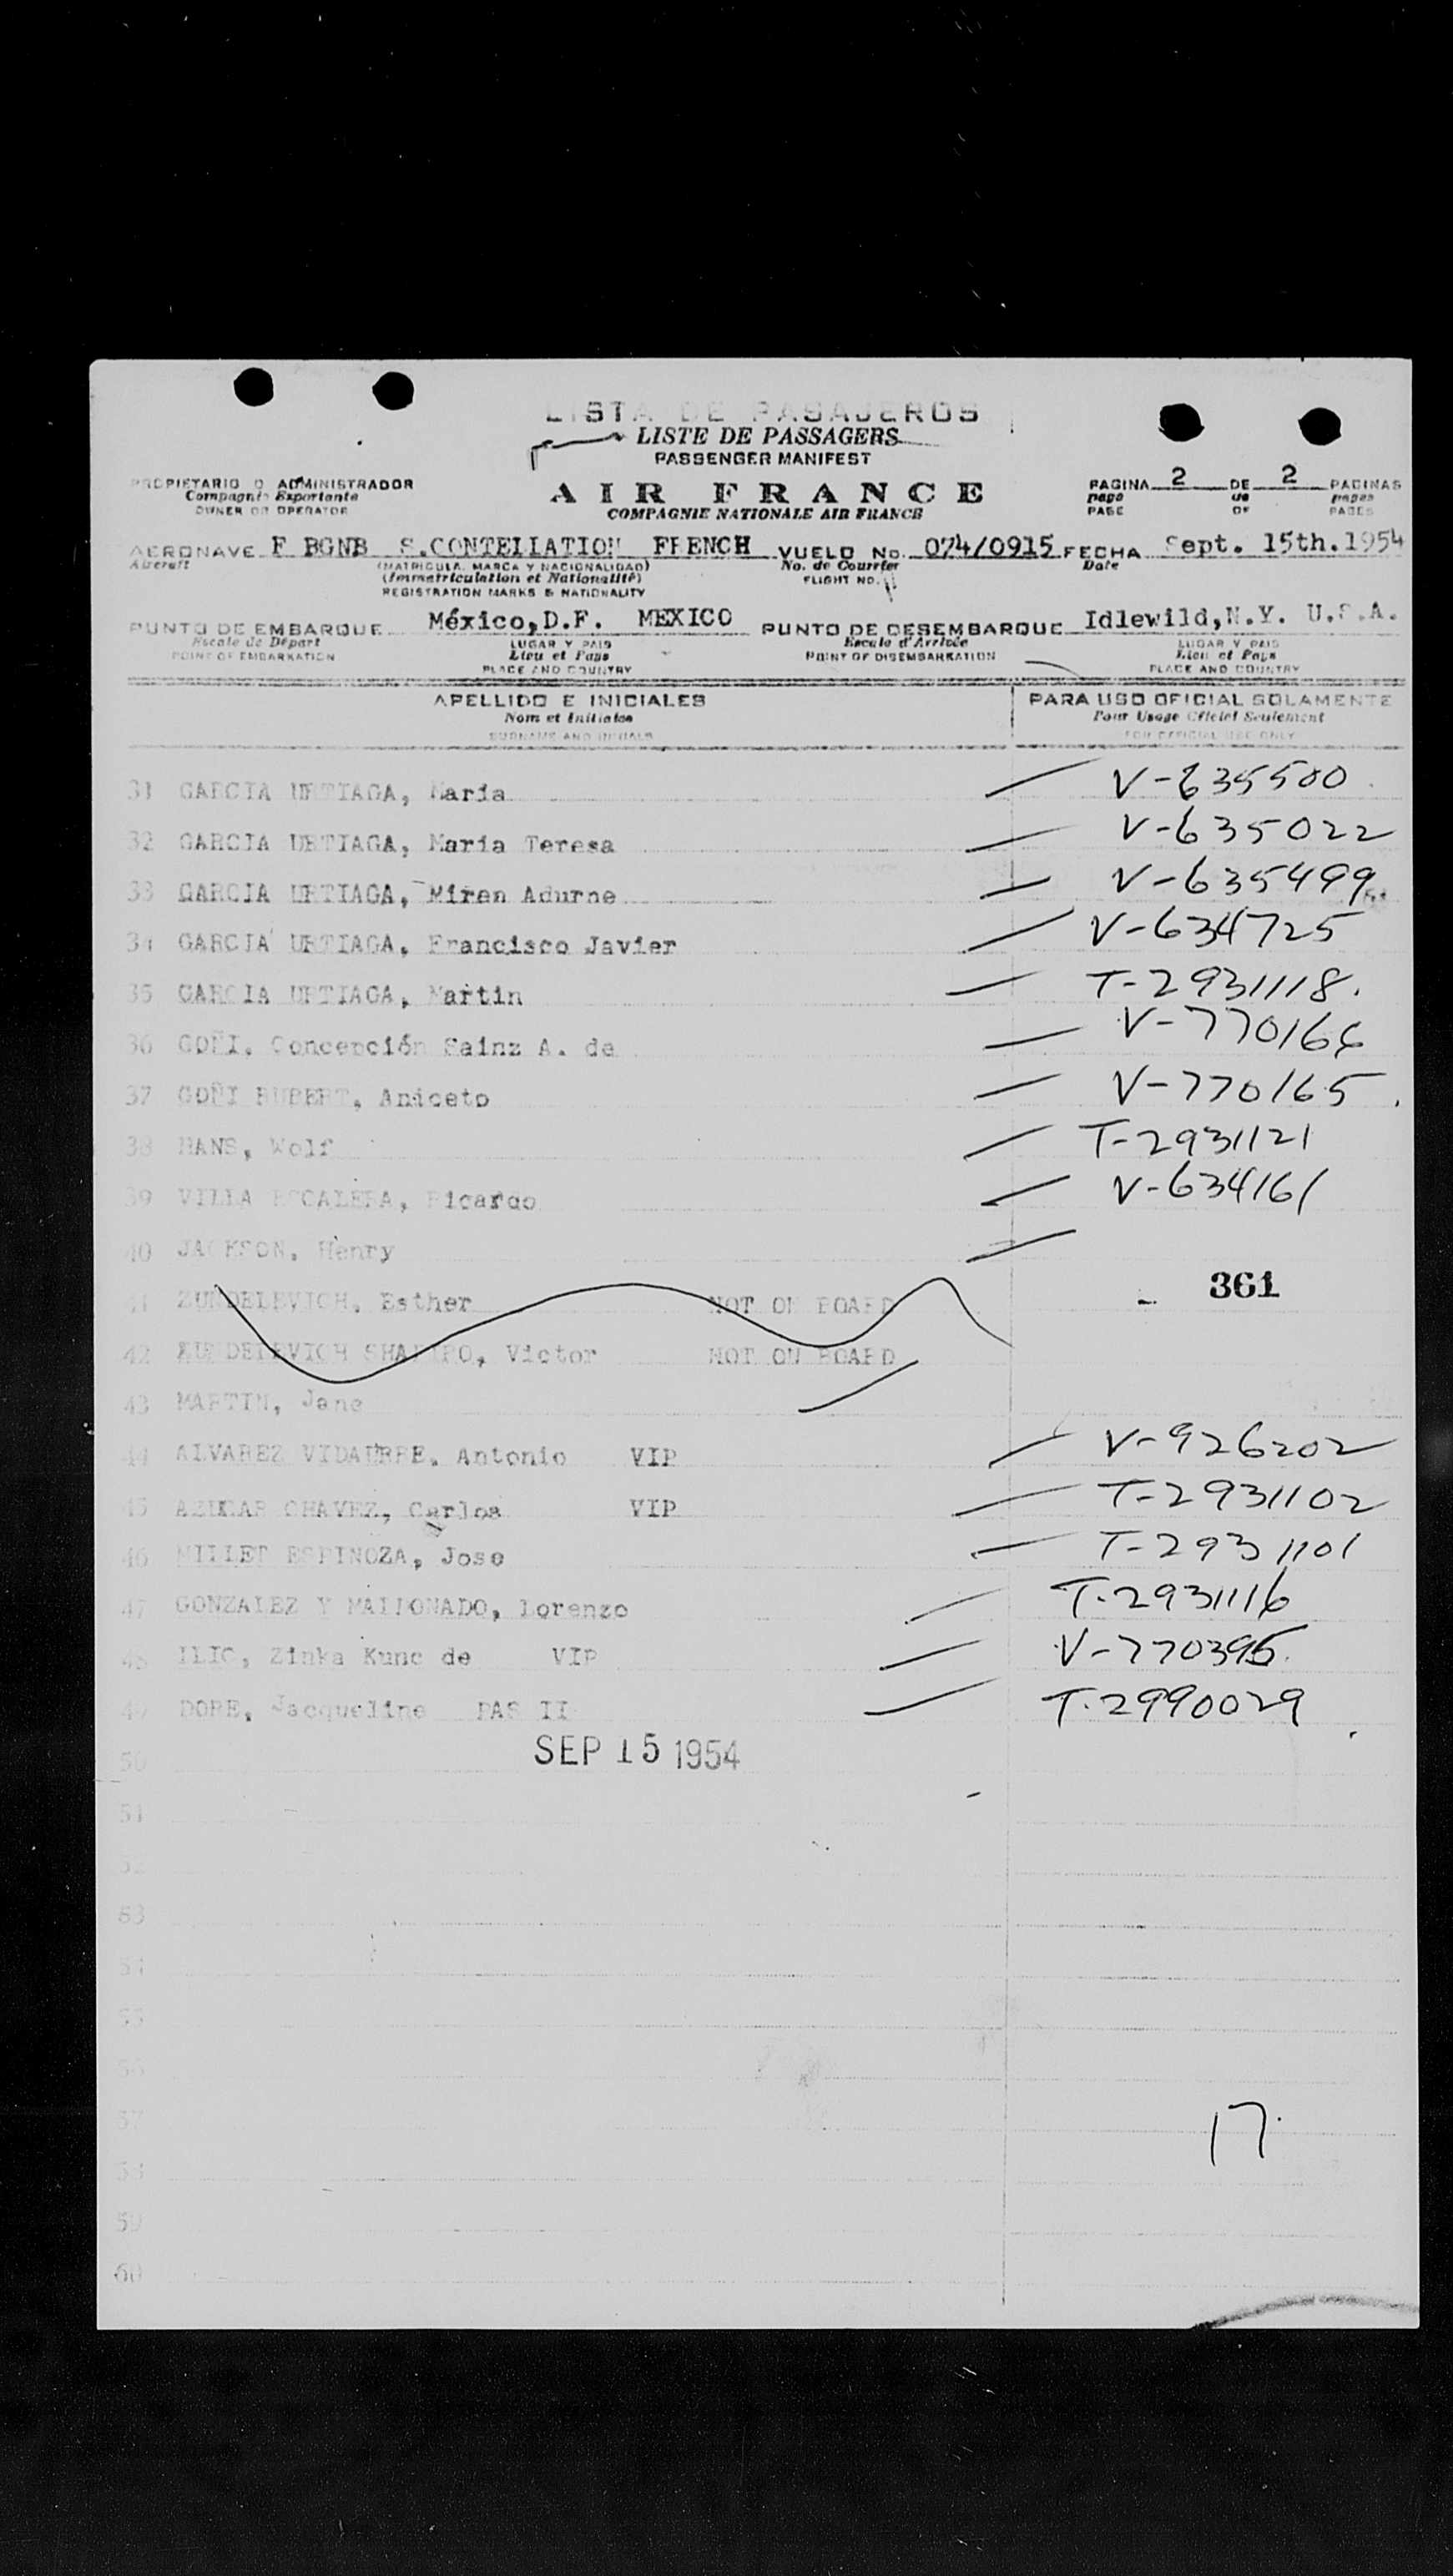 LISTA DE PASAJEROS
LISTE DE PASSAGERS
PASSENGER MANIFEST
PROPIETARIO O ADMINISTRADOR
Compagnie Exportante
OWNER OR OPERATOR
AIR FRANCE
COMPAGNIE NATIONALE AIR FRANCE
PAGINA 2 DE 2 PAGINAS
page de pages
PAGE OF PAGES
AERONAVE F BGNB S.CONTELLATION FRENCH VUELO No. 074/0915 FECHA Sept. 15th.1954
Aircraft (MATRICULA, MARCA Y NACIONALIDAD) No. de Courrier Date
(Immatriculation et Nationalité) FLIGHT NO.
REGISTRATION MARKS & NATIONALITY
PUNTO DE EMBARQUE México,D.F. MEXICO PUNTO DE DESEMBARQUE Idlewild,N.Y. U.S.A.
Escale de Départ LUGAR Y PAIS Escale d'Arrivée LUGAR Y PAIS
POINT OF EMBARKATION Lieu et Pays POINT OF DISEMBARKATION Lieu et Pays
PLACE AND COUNTRY PLACE AND COUNTRY
APELLIDO E INICIALES PARA USO OFICIAL SOLAMENTE
Nom et Initiales Pour Usage Officiel Seulement
SURNAME AND INITIALS FOR OFFICIAL USE ONLY
31 GARCIA URTIAGA, Maria V-635500
32 GARCIA URTIAGA, Maria Teresa V-635022
33 GARCIA URTIAGA, Miren Adurne V-635499
34 GARCIA URTIAGA, Francisco Javier V-634725
35 GARCIA URTIAGA, Martin T-2931118.
36 GOÑI, Concepción Sainz A. de V-770166
37 GOÑI RUBERT, Aniceto V-770165
38 HANS, Wolf T-2931121
39 VILLA ESCALERA, Ricardo V-634161
40 JACKSON, Henry
361
41 ZUNDELEVICH, Esther NOT ON BOARD
42 ZUNDELEVICH SHAPIRO, Victor NOT ON BOARD
43 MARTIN, Jane
44 ALVAREZ VIDAURRE, Antonio VIP V-926202
45 AZUCAR CHAVEZ, Carlos VIP T-2931102
46 MILLET ESPINOZA, Jose T-2931101
47 GONZALEZ Y MALDONADO, Lorenzo T-2931116
48 ILIC, Zinka Kunc de VIP V-770395
49 DORE, Jacqueline PAS II T-2990029
50 SEP 15 1954
51
52
53
54
55
56
57 17
58
59
60